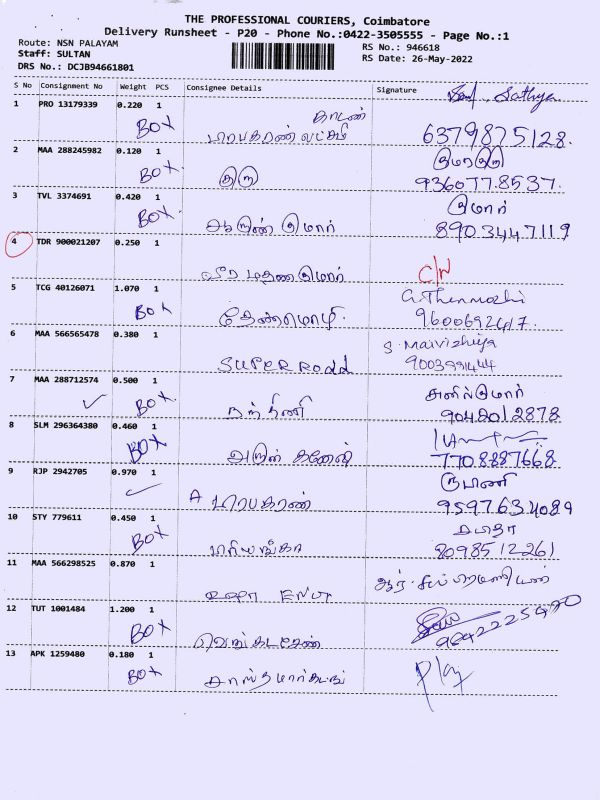 THE PROFESSIONAL COURIERS, Coimbatore
Delivery Runsheet - P20 - Phone No.:0422-3505555 - Page No.:1
Route: NSN PALAYAM
Staff: SULTAN
DRS No.: DCJB94661801
RS No.: 946618
RS Date: 26-May-2022
S No Consignment No Weight PCS Consignee Details Signature
1 PRO 13179339 0.220 1 Sathya
BOX 6379875128
2 MAA 288245982 0.120 1
BOX குரு 9360778537
3 TVL 3374691 0.420 1 குமார்
BOX அருண் குமார் 8903447119
4 TDR 900021207 0.250 1
C/N
5 TCG 40126071 1.070 1 G. Thenmozhi
BOX தேன்மொழி 9600692417
6 MAA 566565478 0.380 1
SUPER 9003991444
7 MAA 288712574 0.500 1 சுனில்குமார்
BOX நந்தினி 9042012878
8 SLM 296364380 0.460 1
BOX அருள் கணேஷ் 7708887668
9 RJP 2942705 0.970 1
A பிரபாகரண் 9597634089
10 STY 779611 0.450 1
BOX 8098512261
11 MAA 566298525 0.870 1
12 TUT 1001484 1.200 1
BOX 9042225470
13 APK 1259480 0.180 1
BOX